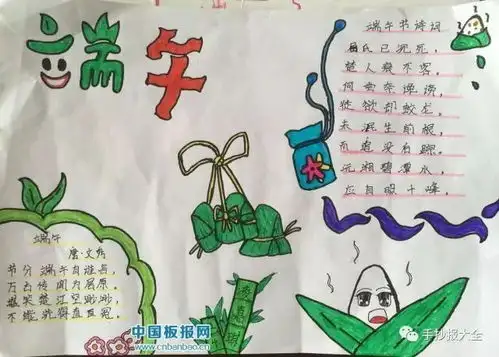 端午
端午节诗词
屈氏已沉死,
楚人哀不容。
何尝奈谗谤,
徒欲却蛟龙。
未泯生前恨,
而追没后踪。
沅湘碧潭水,
应自照千峰。
端午
唐·文秀
节分端午自谁言,
万古传闻为屈原。
堪笑楚江空渺渺,
不能洗得直臣冤。
中国板报网
www.cnbanbao.cn
手抄报大全